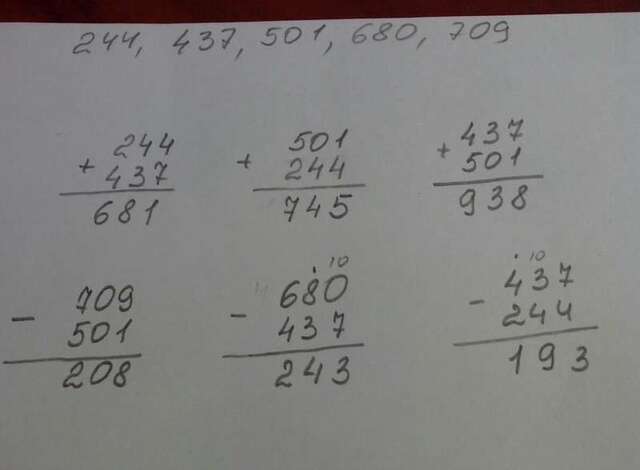 244, 437, 501, 680, 709
244
+ 437
681
501
+ 244
745
437
+ 501
938
709
- 501
208
. 10
680
- 437
243
. 10
437
- 244
193